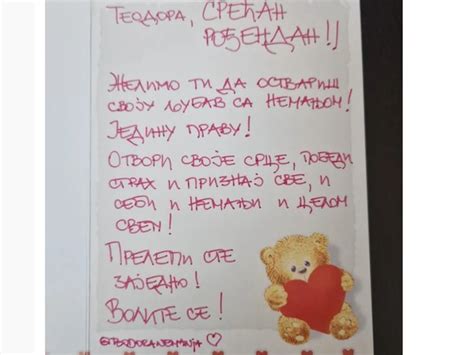 Теодора, СРЕЋАН
РОЂЕНДАН!!
Желимо ти да оствариш
своју љубав са Немањом!
Једину праву!
Отвори своје срце, победи
страх и признај све, и
себи и Немањи и целом
свету!
Прелепи сте
заједно!
Волите се!